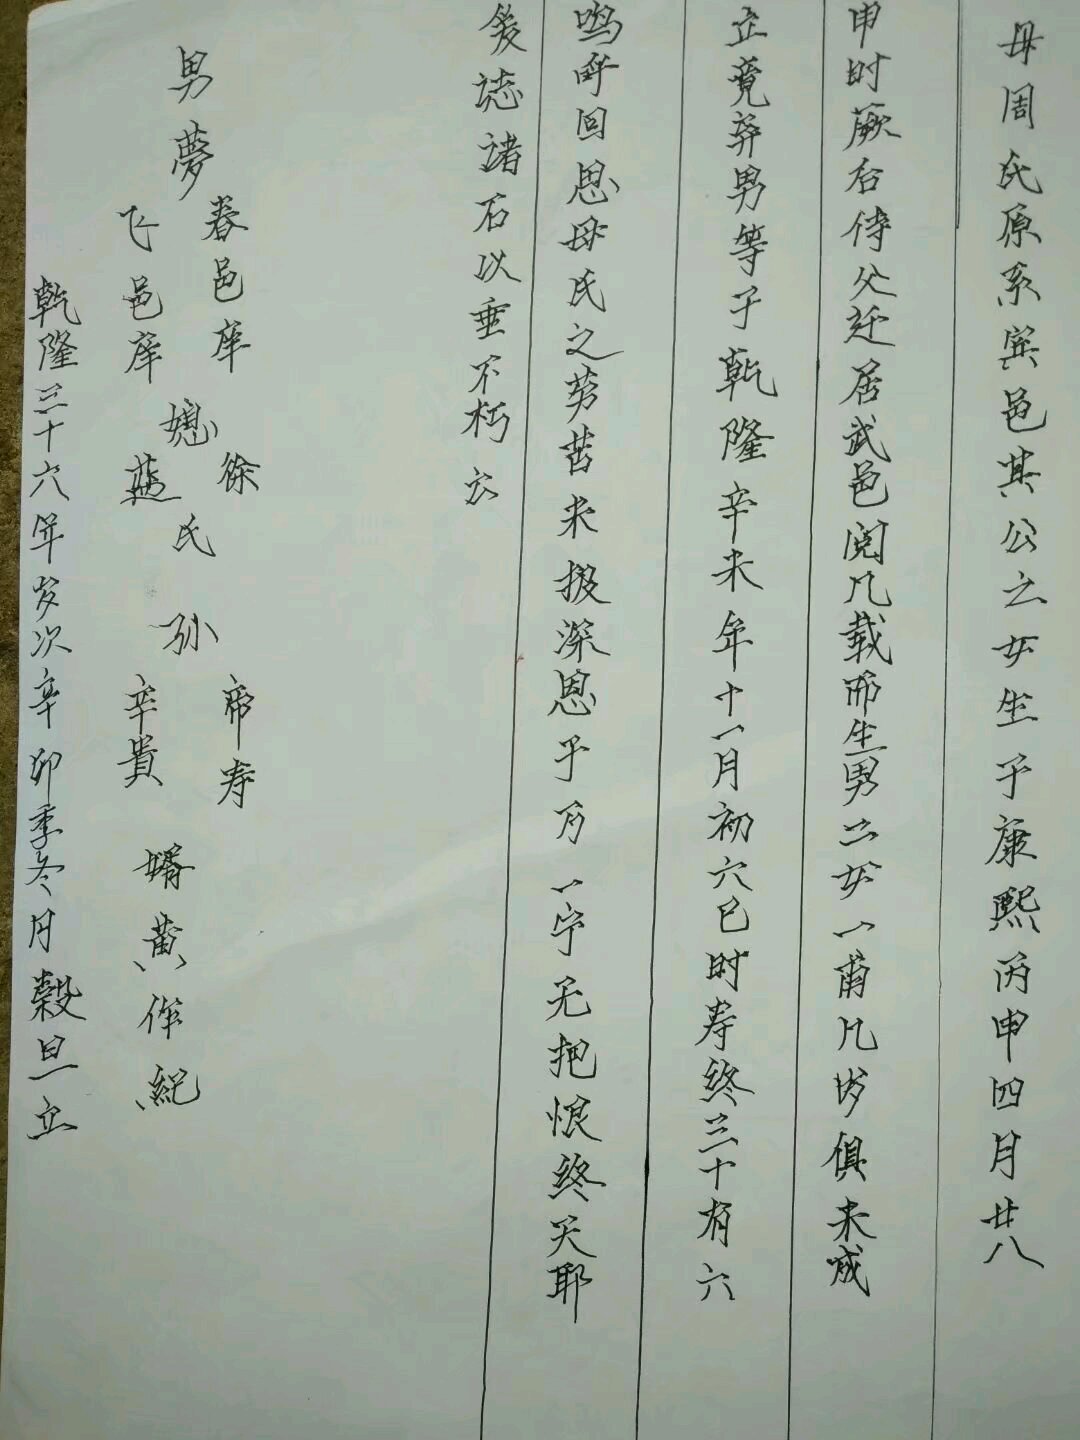 母周氏原系宾邑其公之女生于康熙丙申四月廿八
申时厥后侍父迁居武邑阅几载而生男二女一甫几岁俱未成
立竟弃男等于乾隆辛未年十一月初六巳时寿终三十有六
呜呼回思母氏之劳苦未报深恩于万一宁无抱恨终天耶
爰誌诸石以垂不朽云
男夢
春邑庠
飞邑庠
媳
徐
氏
孙
帝寿
辛貴
婿黄作紀
乾隆三十六年岁次辛卯季冬月榖旦立